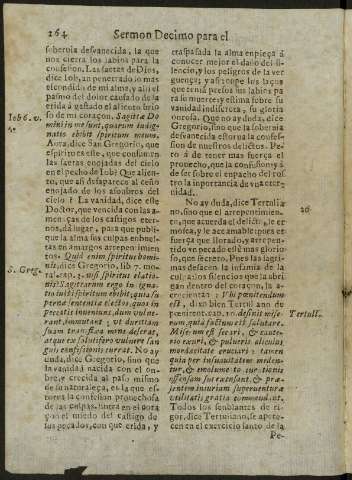 264 Sermon Decimo para el
soberuia desuanecida, la que
nos cierra los labios para la
confession. Las saetas de Dios,
dize Iob, an penetrado lo mas
escondido de mi alma, y assi el
pasmo del dolor causado de la
erida à gastado el aliento brio
so de mi coraçon. Sagittæ Do
mini in me sunt, quarum indig-
natio ebibit spiritum meum.
Aora, dize San Gregorio, que
espiritu es este, que consumen
las saetas enojadas del cielo
en el pecho de Iob? Que alien-
to, que assi desaparece al ceño
enojado de los assombros del
cielo? La vanidad, dize esse
Doctor, que vencida con las a-
menaças de los castigos eter-
nos, dà lugar, para que publi-
que la alma sus culpas enbuel-
tas en amargos arrepentimien
tos. Quid enim spiritus homi-
nis, dize Gregorio, lib 7. mora.
cap. nisi spiritus elatio-
nis? Sagittarum ergo in igna-
tio iusti spiritum ebibit, quia su
perna sententia electos, quos in
peccatis inueniunt, dum vulne-
rant, immutant; ut duritiam
suam transfixa mens deserat,
atque ex salutifero vulnere san
guis confessionis currat. No ay
duda, dize Gregorio, sino que
la vanidad nacida con el on-
bre, y crecida al passo mismo
de su naturaleza, es la que es-
torua la confession prouechosa
de las culpas, hunta en el cora
çon el miedo del castigo de
los pecados, con que erida, y
Iob 6. v.
S. Greg.
traspasada la alma enpieça à
conocer mejor el daño del si-
lencio, y los peligros de la ver
guença; y assi ronpe los laços
que tenia presos sus labios pa
ra su muerte: y estima sobre su
vanidad indiscreta, su gloria
onrosa. Que no ay duda, dize
Gregorio, sino que la soberuia
desuanecida estorua la confes-
sion de nuestros delictos. Pe-
ro à de tener mas fuerça el
prouecho, que la confusion; y à
de ser sobre el enpacho del ros
tro la importancia de vna eter
nidad.
No ay duda, dize Tertulia
no, sino que el arrepentimien-
to, que acuerda el delicto, le er
mosea, y le aze amable: pues en
fuerça que llorado, y arrepen
tido vn pecado es mas glorio-
so, que secreto. Pues las lagri-
mas desazen la infamia de la
culpa: los silencios que la abri
gan dentro del coraçon, la a-
crecientan: Vbi pœnitendum
est, dixo bien Tertuliano de
pœnitent. cap. 10. desinit mise-
rum, quia factum est salutare.
Miserum est secari, & caute-
rio exuri, & pulueris alicuius
mordacitate cruciari: tamen
quæ per insuauitatem meden-
tur, & emolumento curationis
offensam sui excusant, & præ-
sentem iniuriam superuenturæ
vtilitatis gratia commendant.
Todos los senblantes de ri-
gor, dize Tertuliano, se apete-
cen en el exercicio santo de la
20
Tertull.
Pe-